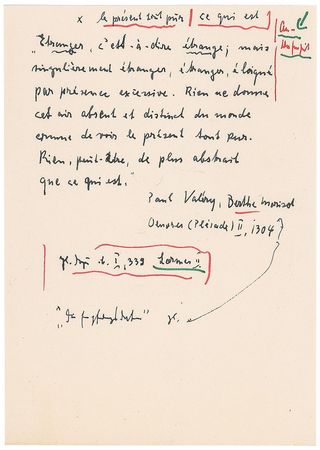 x le présent tout pur | ce qui est
"Etranger, c'est-à-dire étrange; mais
singulièrement étranger, étranger, éloigné
par présence excessive. Rien ne donne
cet air absent et distinct du monde
comme de voir le présent tout pur.
Rien, peut-être, de plus abstrait
que ce qui est."
Paul Valéry, Berthe Morisot
Oeuvres (Pléiade) II, 1304
t. I, 339